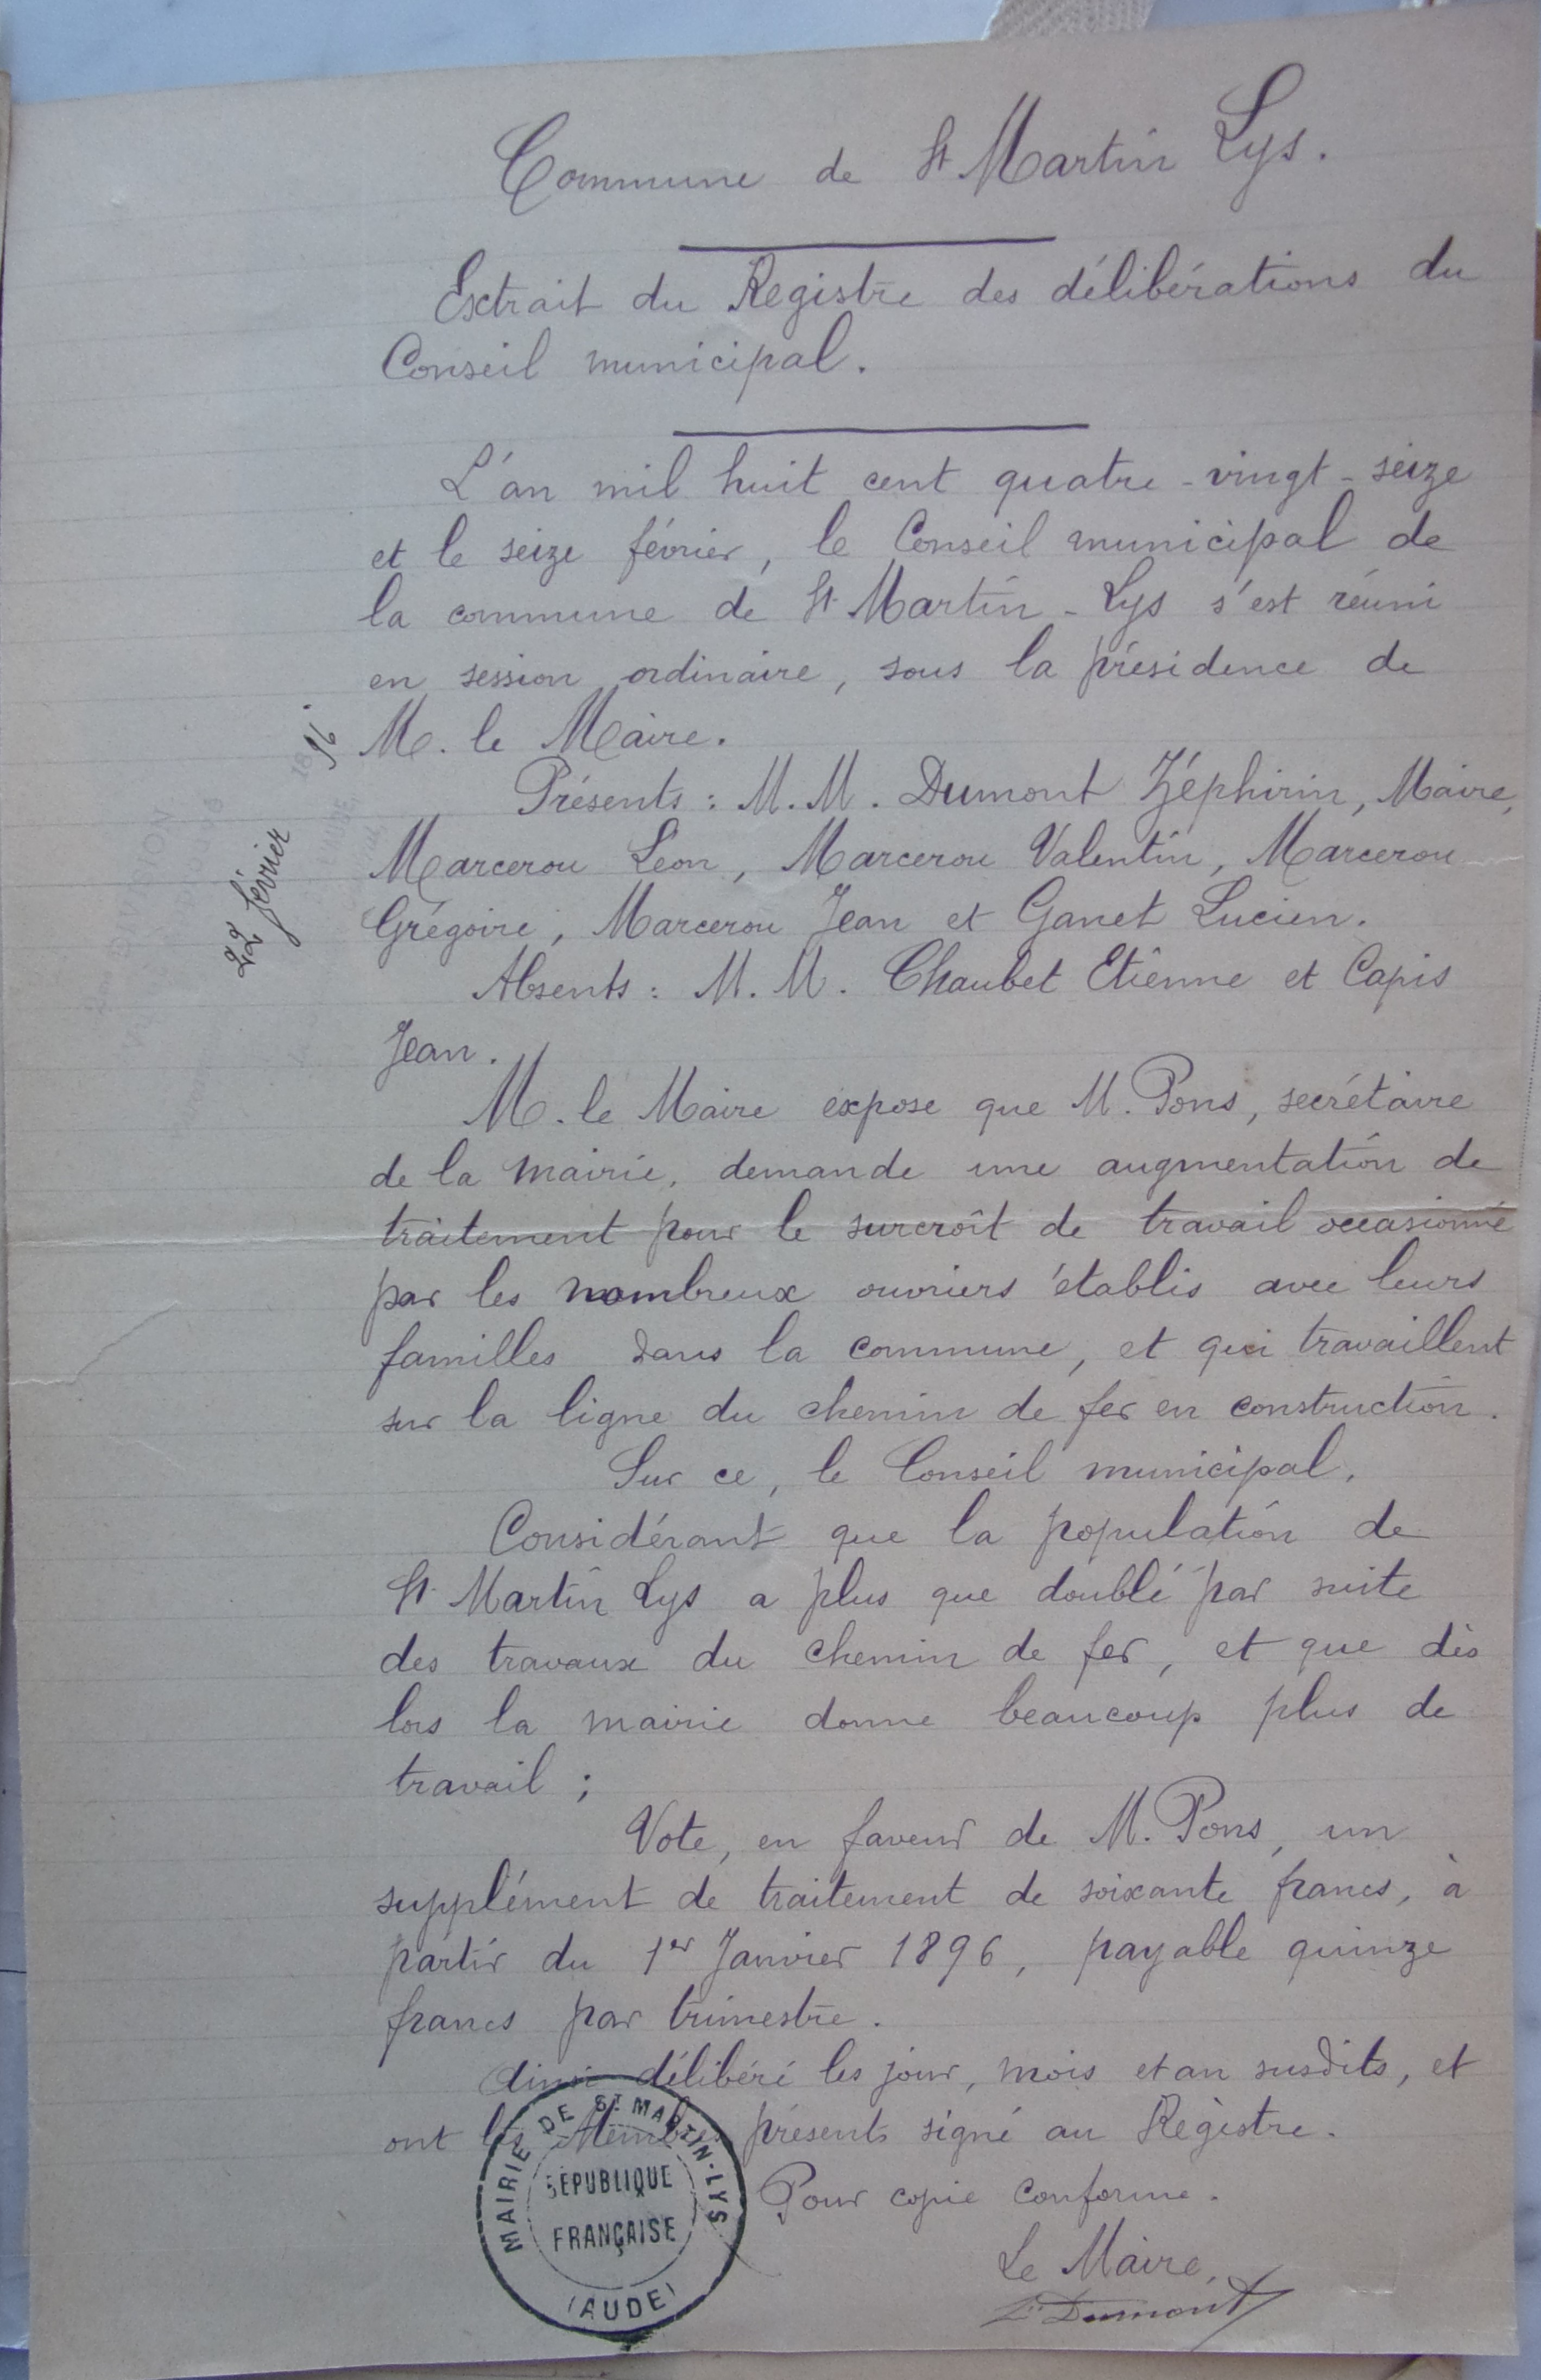 Commune de St Martin Lys.
Extrait du Registre des délibérations du
Conseil municipal.
L'an mil huit cent quatre-vingt-seize
et le seize février, le Conseil municipal de
la commune de St Martin-Lys s'est réuni
en session ordinaire, sous la présidence de
M. le Maire.
Présents : M.M. Dumont Zéphirin, Maire,
Marcerou Léon, Marcerou Valentin, Marcerou
Grégoire, Marcerou Jean et Ganet Lucien.
Absents : M.M. Chaubet Etienne et Capis
Jean.
M. le Maire expose que M. Pons, secrétaire
de la mairie, demande une augmentation de
traitement pour le surcroît de travail occasionné
par les nombreux ouvriers établis avec leurs
familles dans la commune, et qui travaillent
sur la ligne du chemin de fer en construction.
Sur ce, le Conseil municipal,
Considérant que la population de
St Martin Lys a plus que doublé par suite
des travaux du chemin de fer, et que dès
lors la mairie donne beaucoup plus de
travail ;
Vote, en faveur de M. Pons, un
supplément de traitement de soixante francs, à
partir du 1er Janvier 1896, payable quinze
francs par trimestre.
Ainsi délibéré les jour, mois et an susdits, et
ont les Membres présents signé au Régistre.
Pour copie conforme.
Le Maire,
Dumont
MAIRIE DE ST MARTIN-LYS
RÉPUBLIQUE
FRANÇAISE
(AUDE)
22 février 96